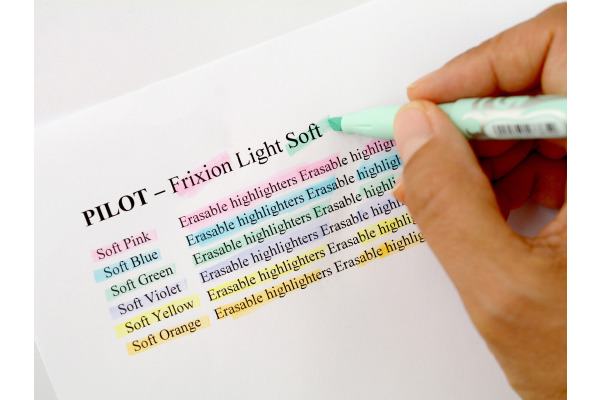 PILOT – Frixion Light Soft
Soft Pink Erasable highlighters Erasable highlig
Soft Blue Erasable highlighters Erasable highligh
Soft Green Erasable highlighters Erasable highl
Soft Violet Erasable highlighters Erasable highli
Soft Yellow Erasable highlighters Erasable highl
Soft Orange Erasable highlighters Erasable highlig